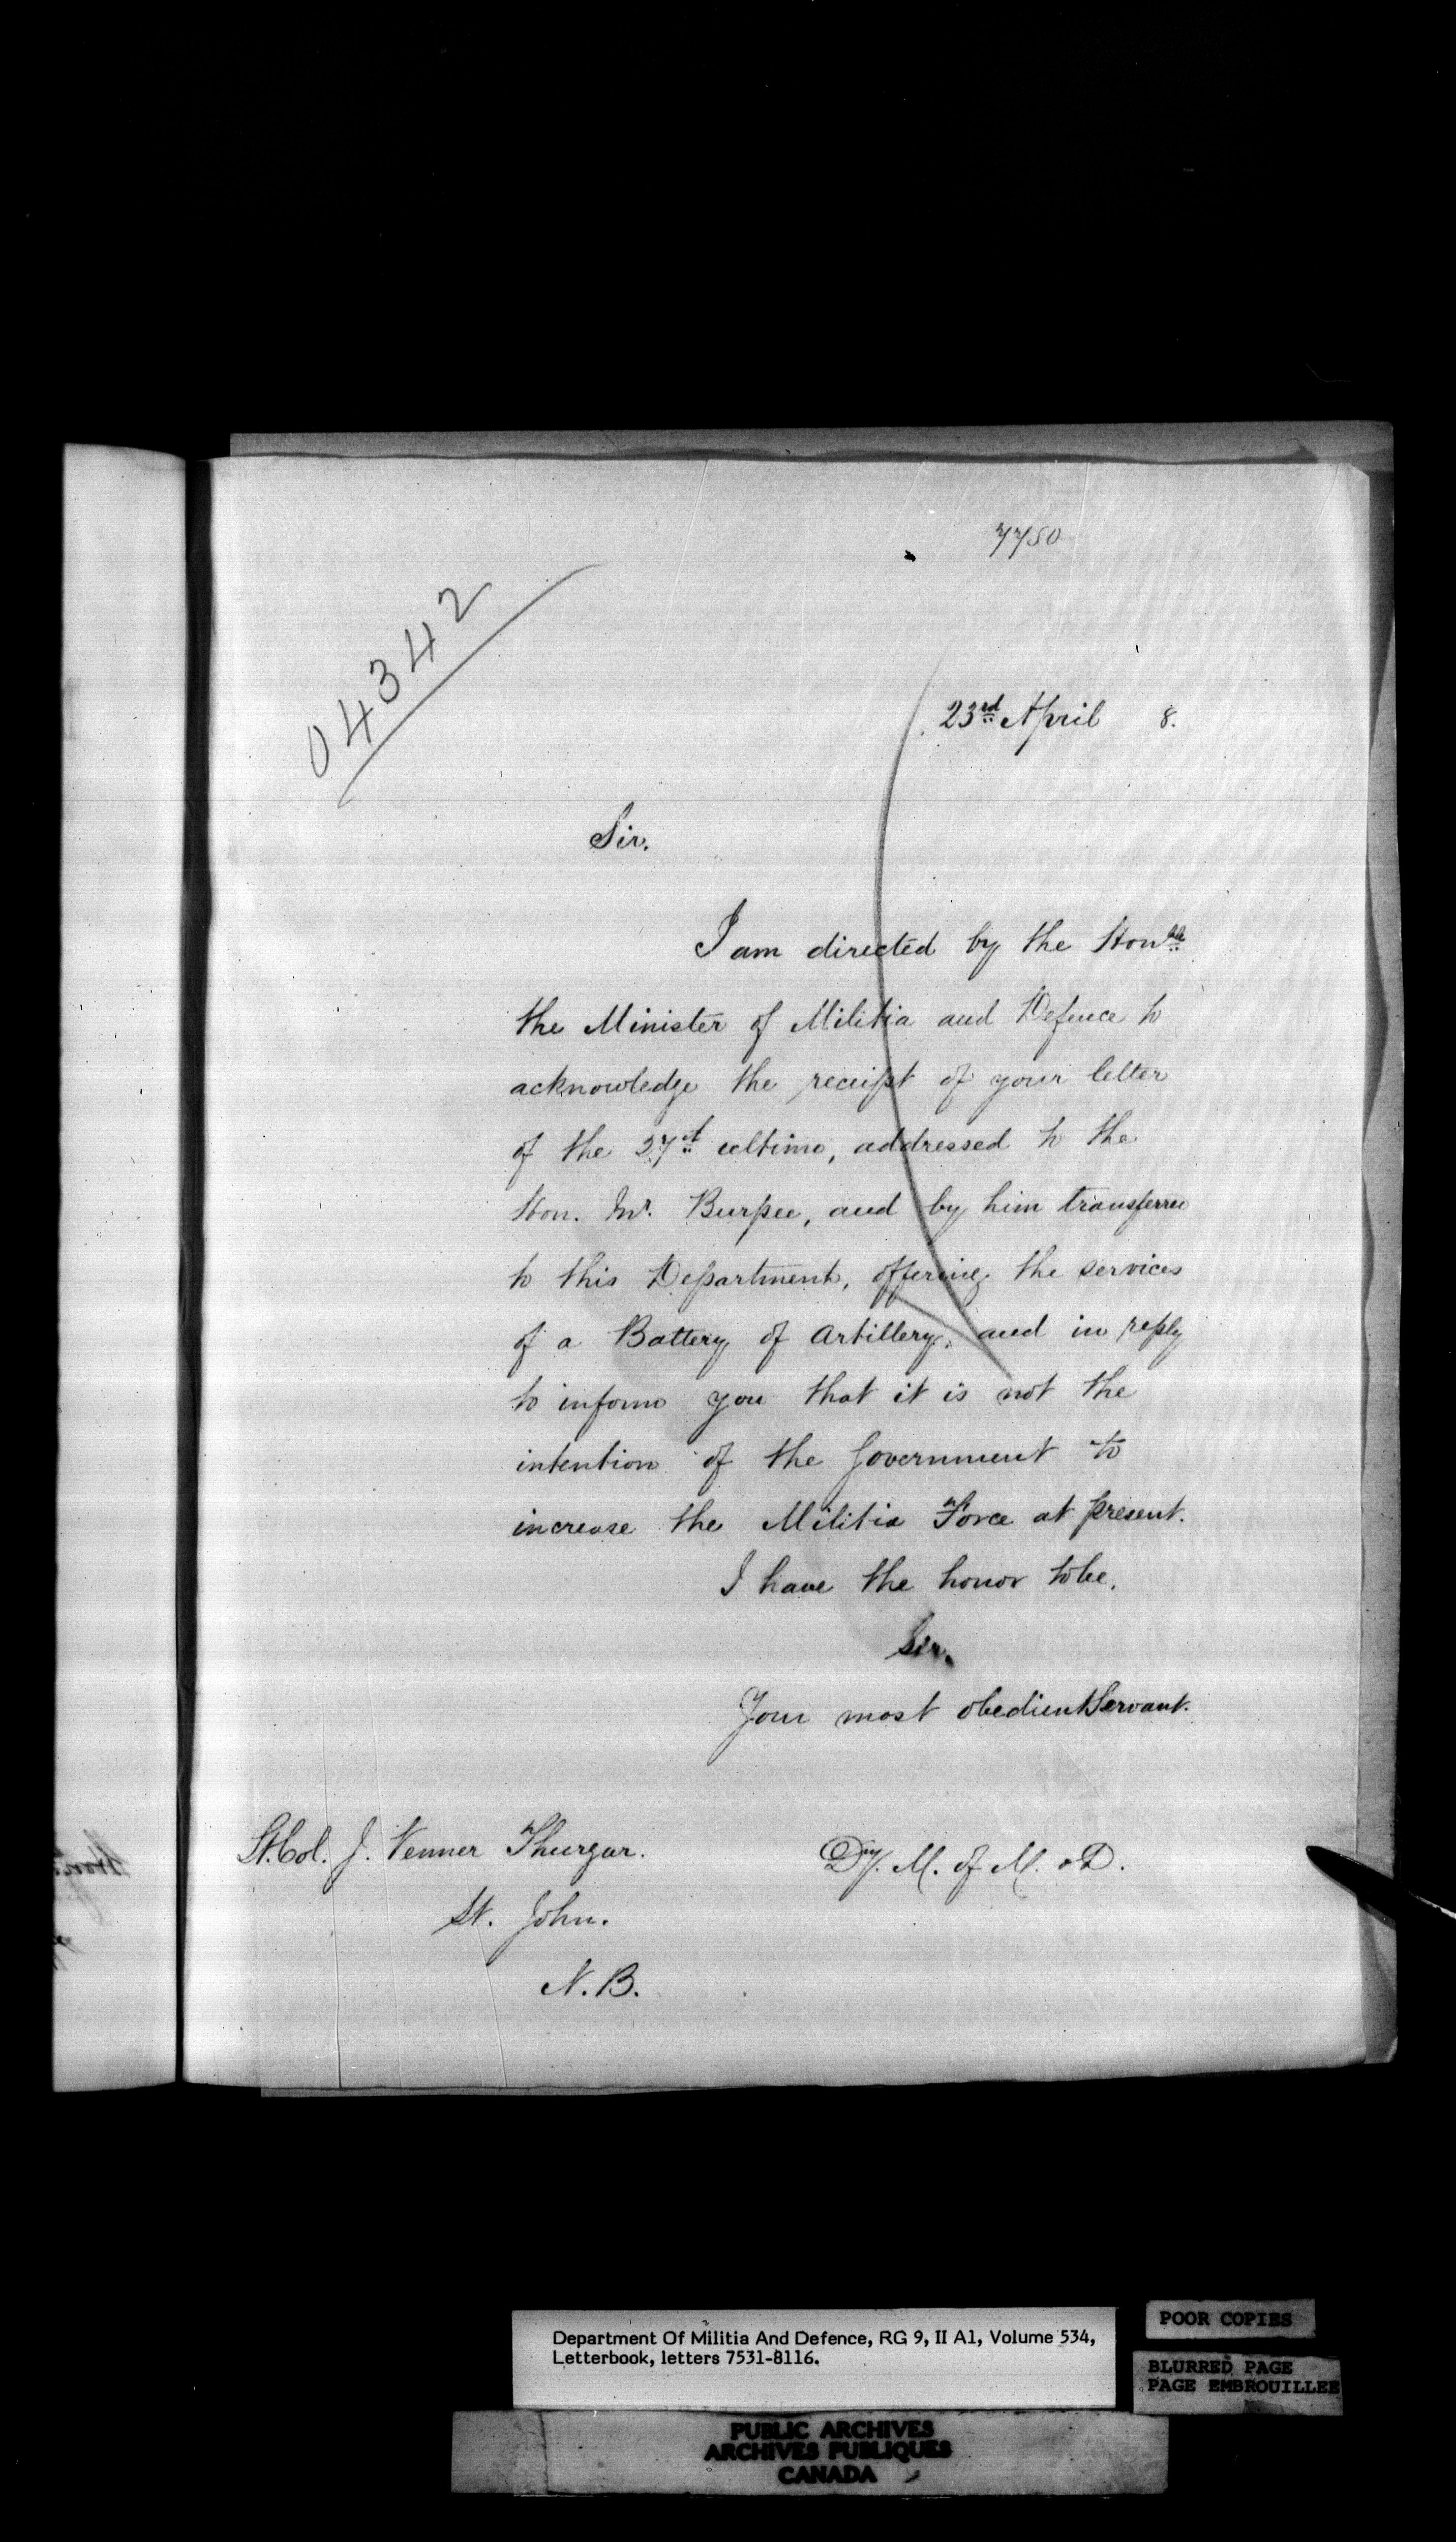 7750
04342
23rd April 8.
Sir.
I am directed by the Honble
the Minister of Militia and Defence to
acknowledge the receipt of your letter
of the 27st ultimo, addressed to the
Hon. Mr. Burpee, and by him transferred
to this Department, offering the services
of a Battery of Artillery, and in reply
to inform you that it is not the
intention of the Government to
increase the Militia Force at present.
I have the honor to be,
Sir.
Your most obedient Servant.
Lt. Col. J. Venner Thurgar.
Dy. M. of M. & D.
St. John.
N.B.
Department Of Militia And Defence, RG 9, II A1, Volume 534,
Letterbook, letters 7531-8116.
POOR COPIES
BLURRED PAGE
PAGE EMBROUILLEE
PUBLIC ARCHIVES
ARCHIVES PUBLIQUES
CANADA